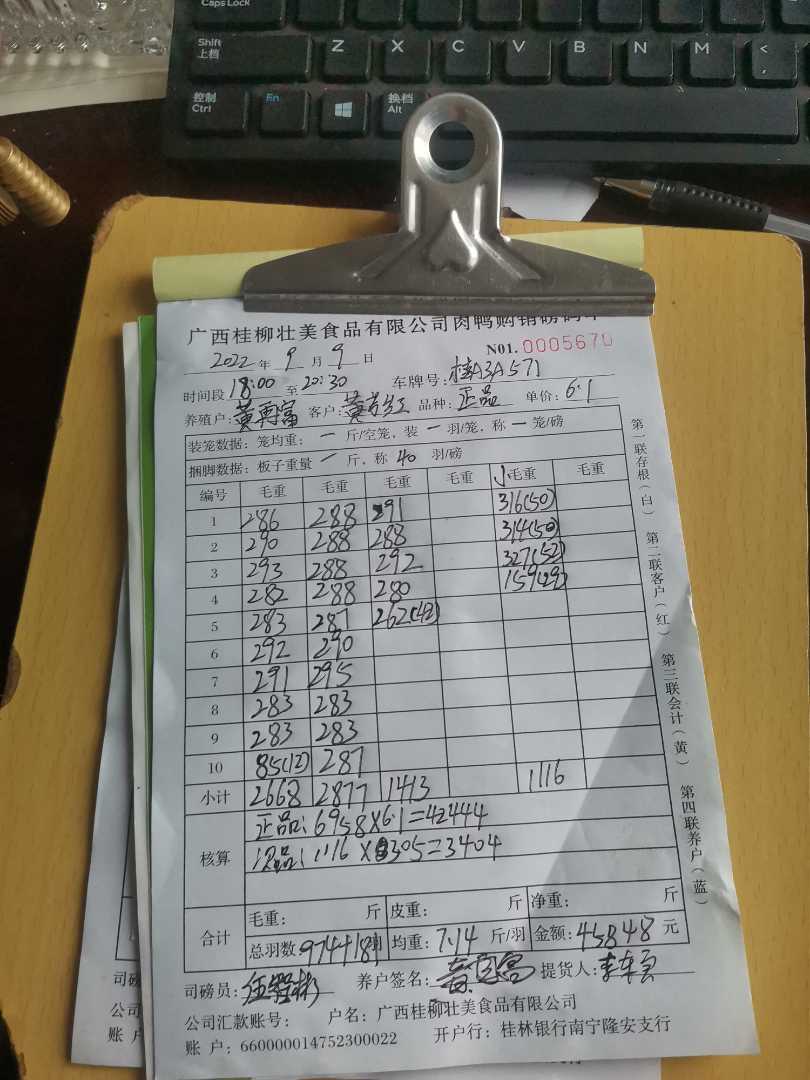 Caps Lock
Shift
上档
Z X C V B N M <
控制
Ctrl
Fn
换档
Alt
广西桂柳壮美食品有限公司肉鸭购销磅码单
2022 年 9 月 9 日 N01. 0005670
时间段 18:00 至 20:30 车牌号: 桂A3A571
养殖户: 黄再富 客户: 品种: 正品 单价: 6.1
装笼数据: 笼均重: 一 斤/空笼, 装 一 羽/笼, 称 一 笼/磅
捆脚数据: 板子重量 一 斤, 称 40 羽/磅
编号 毛重 毛重 毛重 毛重 毛重 毛重
1 286 288 291 316(50)
2 290 288 288 314(50)
3 293 288 292 327(52)
4 282 288 280 159(29)
5 283 287 262(42)
6 292 290
7 291 295
8 283 283
9 283 283
10 85(12) 287
小计 2668 2877 1413 1116
核算
正品: 6958×6.1=42444
次品: 1116×305=3404
合计
毛重: 斤 皮重: 斤 净重: 斤
总羽数: 974+181 均重: 7.14 斤/羽 金额: 45848 元
司磅员: 养户签名: 提货人:
公司汇款账号: 户名: 广西桂柳壮美食品有限公司
账 户: 660000014752300022 开户行: 桂林银行南宁隆安支行
第一联存根(白) 第二联客户(红) 第三联会计(黄) 第四联养户(蓝)
司磅
公司
账 户